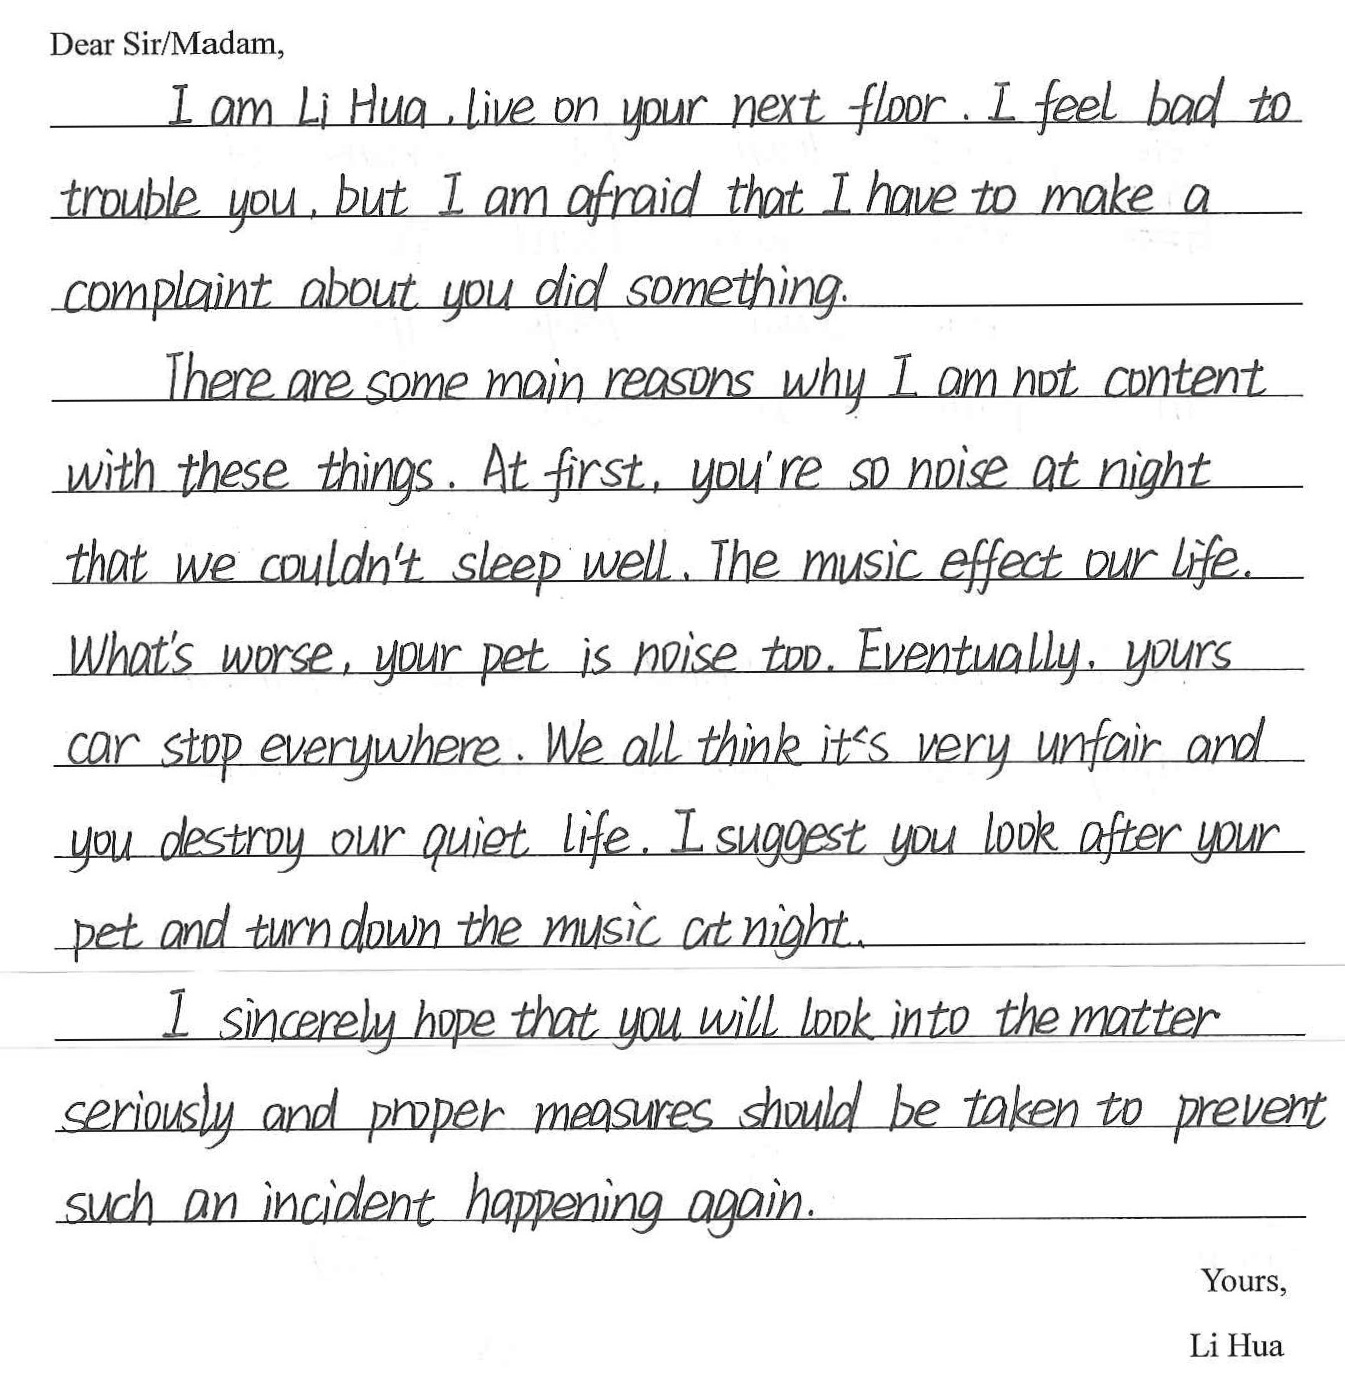 Dear Sir/Madam,
I am Li Hua, live on your next floor. I feel bad to
trouble you, but I am afraid that I have to make a
complaint about you did something.
There are some main reasons why I am not content
with these things. At first, you're so noise at night
that we couldn't sleep well. The music effect our life.
What's worse, your pet is noise too. Eventually, yours
car stop everywhere. We all think it's very unfair and
you destroy our quiet life. I suggest you look after your
pet and turn down the music at night.
I sincerely hope that you will look into the matter
seriously and proper measures should be taken to prevent
such an incident happening again.
Yours,
Li Hua